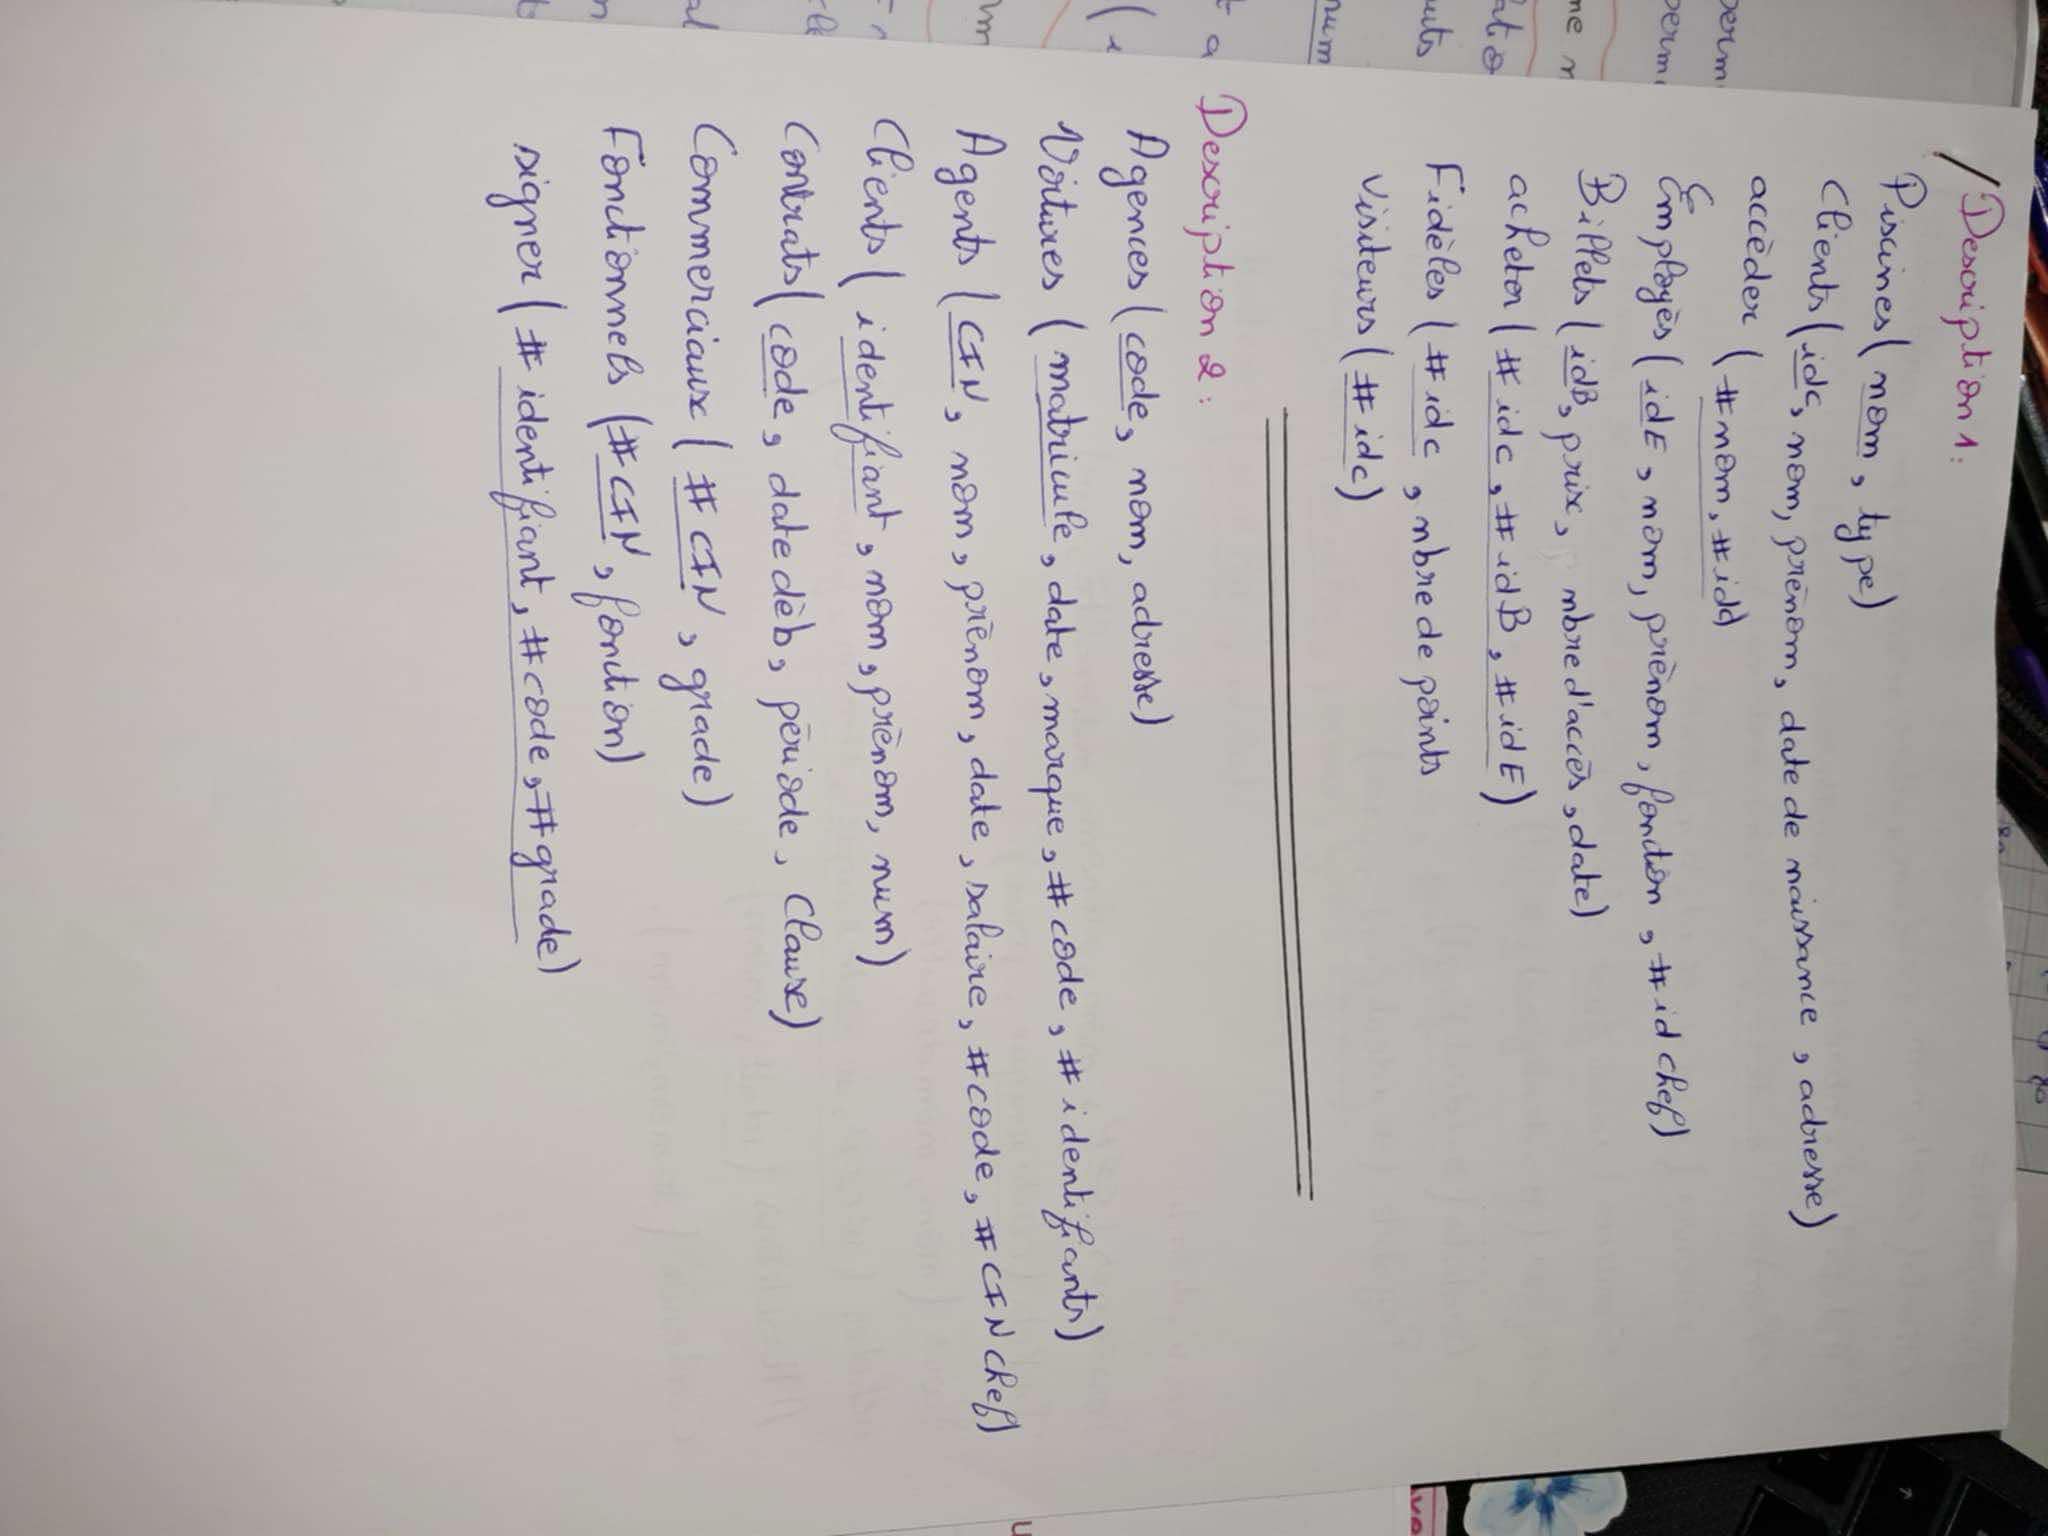 Description 1:
Piscines (nom, type)
Clients (idc, nom, prénom, date de naissance, adresse)
accèder (#nom, #idc)
Employés (idE, nom, prènom, fonction, #id chef)
Billets (idB, prix, nbre d'accès, date)
acheter (#idc, #idB, #idE)
Fidèles (#idc, nbre de points
Visiteurs (#idc)
Description 2:
Agences (code, nom, adresse)
Voitures (matricule, date, marque, #code, #identifiants)
Agents (CIN, nom, prènom, date, salaire, #code, #CIN chef)
Clients (identifiant, nom, prènom, num)
Contrats (code, date dèb, période, Clause)
Commerciaux (#CIN, grade)
Fonctionnels (#CIN, fonction)
signer (#identifiant, #code, #grade)